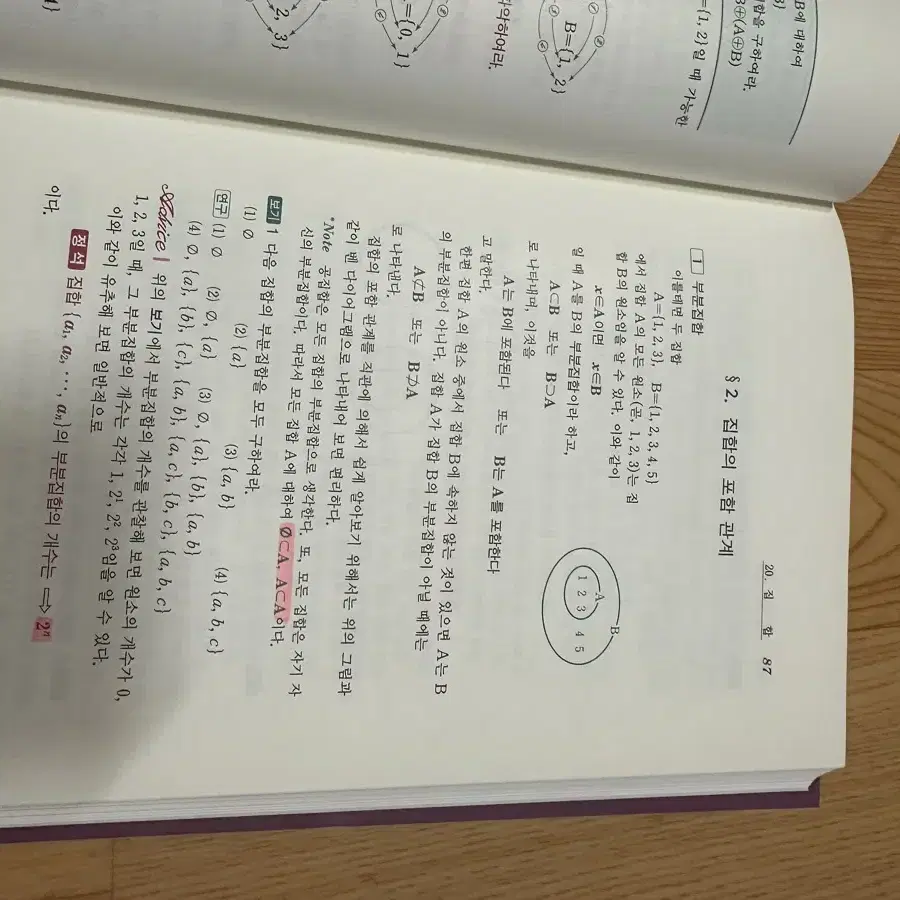 B에 대하여
합을 구하여라.
B⊕(A⊕B)
={1, 2}일 때 가능한
B={1, 2}
={0, 1}
2, 3}
20. 집 합 87
§ 2. 집합의 포함 관계
1 부분집합
이를테면 두 집합
A={1, 2, 3}, B={1, 2, 3, 4, 5}
에서 집합 A의 모든 원소(곧, 1, 2, 3)는 집
합 B의 원소임을 알 수 있다. 이와 같이
x∈A이면 x∈B
일 때 A를 B의 부분집합이라 하고,
A⊂B 또는 B⊃A
로 나타내며, 이것을
A는 B에 포함된다 또는 B는 A를 포함한다
고 말한다.
B
A
1 2 3 4 5
한편 집합 A의 원소 중에서 집합 B에 속하지 않는 것이 있으면 A는 B
의 부분집합이 아니다. 집합 A가 집합 B의 부분집합이 아닐 때에는
A⊄B 또는 B⊅A
로 나타낸다.
집합의 포함 관계를 직관에 의해서 쉽게 알아보기 위해서는 위의 그림과
같이 벤 다이어그램으로 나타내어 보면 편리하다.
*Note 공집합은 모든 집합의 부분집합으로 생각한다. 또, 모든 집합은 자기 자
신의 부분집합이다. 따라서 모든 집합 A에 대하여 ∅⊂A, A⊂A이다.
보기 1 다음 집합의 부분집합을 모두 구하여라.
(1) ∅ (2) {a} (3) {a, b} (4) {a, b, c}
연구 (1) ∅ (2) ∅, {a} (3) ∅, {a}, {b}, {a, b}
(4) ∅, {a}, {b}, {c}, {a, b}, {a, c}, {b, c}, {a, b, c}
Advice 위의 보기에서 부분집합의 개수를 관찰해 보면 원소의 개수가 0,
1, 2, 3일 때, 그 부분집합의 개수는 각각 1, 2¹, 2², 2³임을 알 수 있다.
이와 같이 유추해 보면 일반적으로
정석 집합 {a₁, a₂, ⋯, aₙ}의 부분집합의 개수는 ⟹ 2ⁿ
이다.